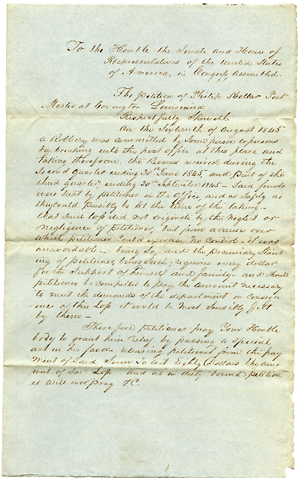 To the Honble the Senate and House of
Representatives of the United States
of America, in Congress assembled.
The petition of Philip Post
Master at Covington Louisiana
Respectfully Sheweth
On the of August 1845
a Robbery was committed by some person or persons
by breaking into the post office at this place and
taking therefrom, the Revenue received during the
Second quarter ending 30 June 1845, and part of the
third quarter ending 30 September 1845 – Said funds
were kept by petitioner in the office, and as safely as
they could possibly be at the time of the taking –
that said loss did not originate by the neglect or
negligence of petitioner, but from a cause over
which petitioner could exercise no control – it was
unavoidable – being so, and the pecuniary stand
ing of petitioner being such, requires every dollar
for the support of himself and family – and should
petitioner be compelled to pay the amount necessary
to meet the demands of the department in conseque
nce of this loss it would be most sensibly felt
by them –
Therefore petitioner pray Your Honble
body to grant him relief by passing a special
act in his favor, releasing petitioner from the pay
ment of said sum Eighty Dollars the amo
unt of his loss and as in duty bound petition
er will ever pray &C